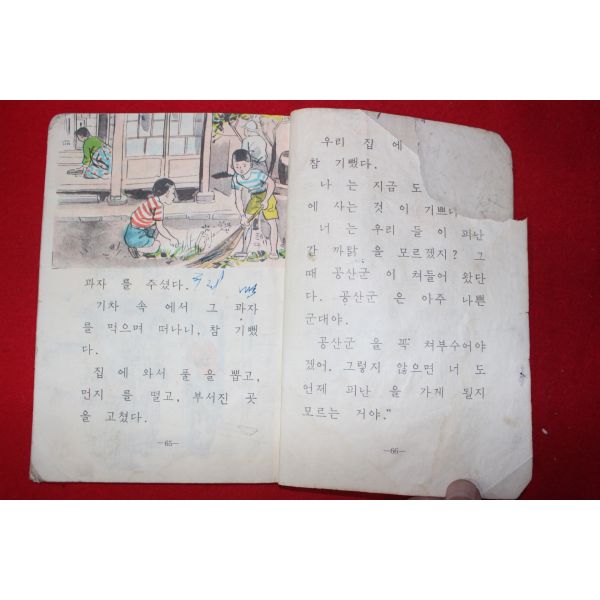 과자 를 주셨다.
기차 속 에서 그 과자
를 먹으며 떠나니, 참 기뻤
다.
집 에 와서 풀 을 뽑고,
먼지 를 떨고, 부서진 곳
을 고쳤다.
—65—
우리 집 에
참 기뻤다.
나 는 지금 도
에 사는 것 이 기쁘다
너 는 우리 들 이 피난
간 까닭 을 모르겠지? 그
때 공산군 이 쳐들어 왔단
다. 공산군 은 아주 나쁜
군대야.
공산군 을 꼭 쳐부수어야
겠어. 그렇지 않으면 너 도
언제 피난 을 가게 될지
모르는 거야."
—66—